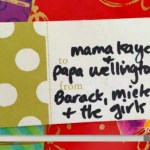 mama kaye
to +
papa wellington
from
Barack, Miele
+ the girls